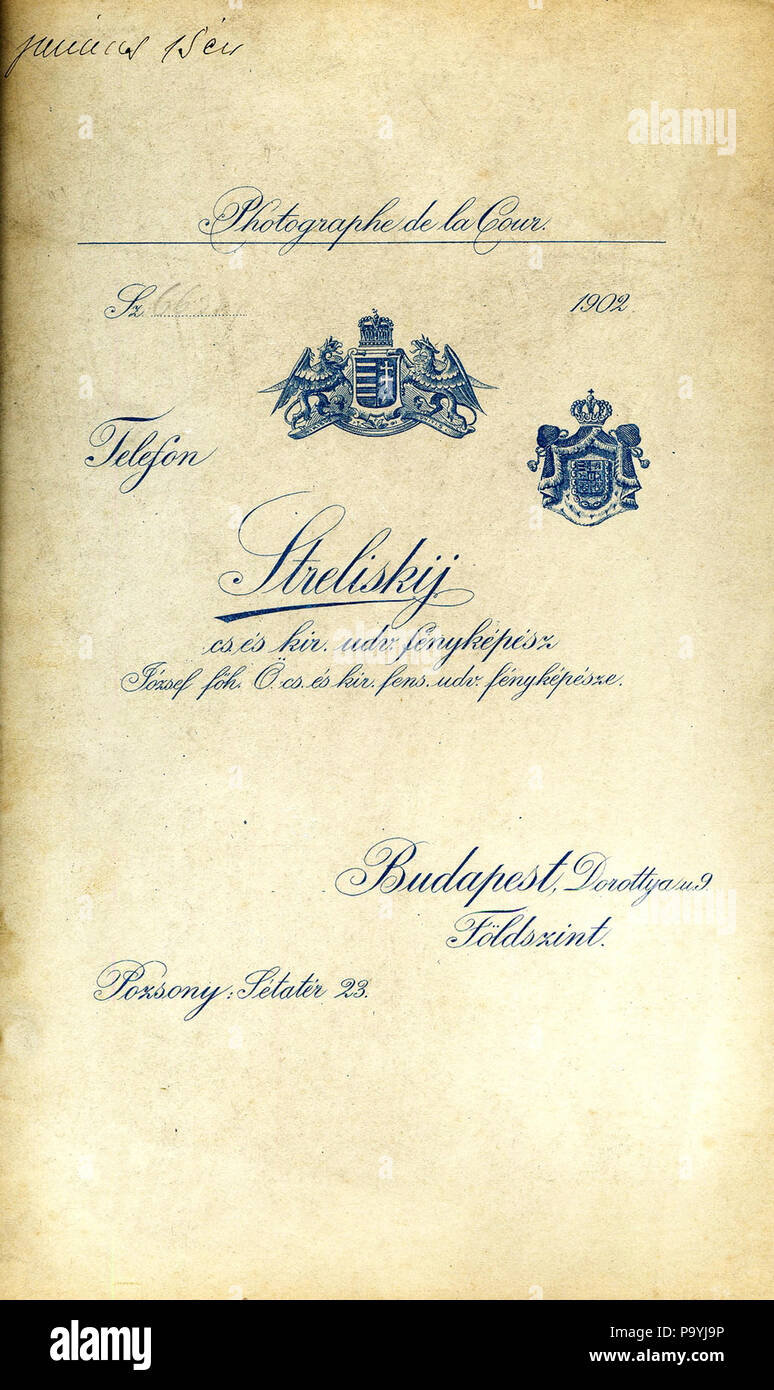 június 15én
Photographe de la Cour.
Sz. 1902
Telefon
Streliskij
cs. és kir. udv. fényképész
József főh. Ö cs. és kir. fens. udv. fényképésze.
Budapest, Dorottya u. 9.
Földszint.
Pozsony: Sétatér 23.
alamy
Image ID: P9YJ9P
www.alamy.com